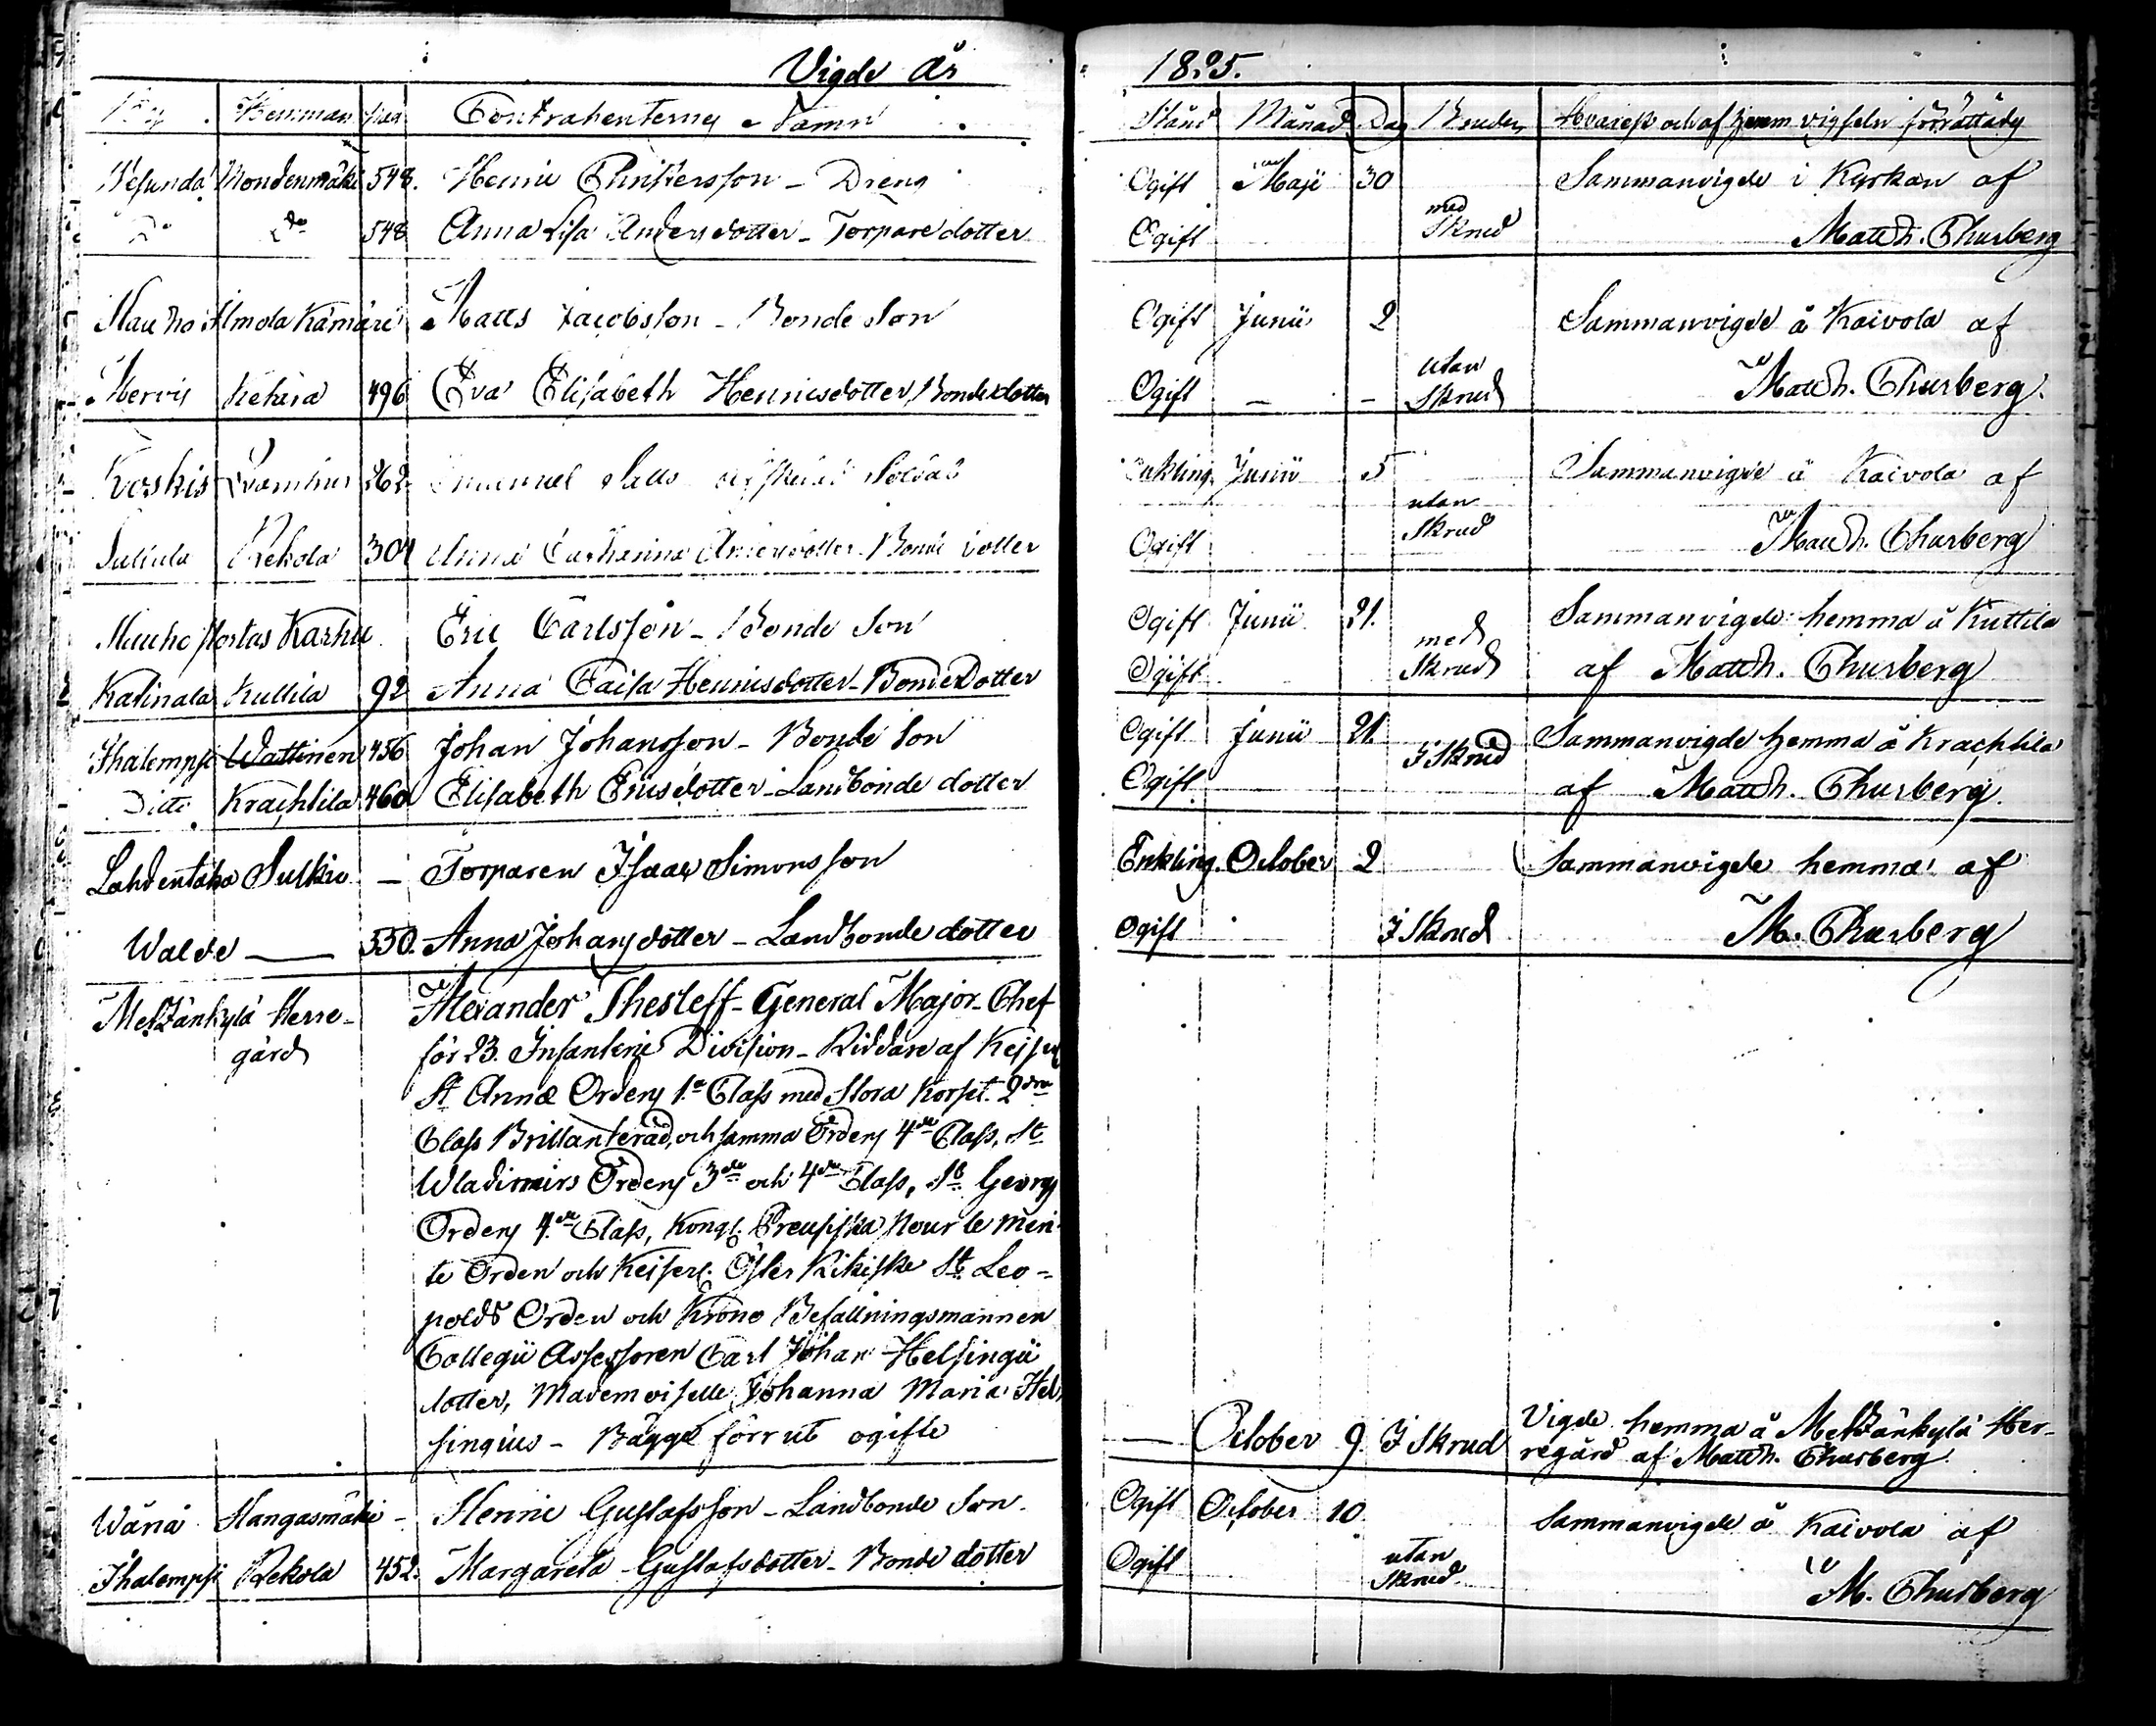 Vigde År
1825.
By Hemman Pag. Contrahenternes Namn
Stånd Månad Dag Bruden Hvarest och af hvem vigseln förrättades
548. Henric Christersson - Dreng
Ogift Maji 30 Sammanvigde i Kyrkan af
Do do 548 Anna Lisa Andersdotter - Torparedotter
Ogift med Skrud Matth. Thusberg
Kämäri Matts Jacobsson - Bonde Son
Ogift Junii 2 Sammanvigde å Kaivola af
496 Eva Elisabeth Henricsdotter, Bondedotter
Ogift — – utan Skrud Matth. Thusberg.
Koskis 262. Salts Soldat
Enkling Junii 5 Sammanvigde å Kaivola af
Rekola 304 Anna Catharina Andersdotter Bonde dotter
Ogift utan Skrud Matth. Thusberg
Karhu Eric Carlsson - Bonde Son
Ogift Junii 21. Sammanvigde hemma å Kuttila
Katinala Kuttila 92 Anna Caisa Henricsdotter - Bonde Dotter
Ogift med Skrud af Matth. Thusberg
Ihalempi Wattinen 456 Johan Johansson - Bonde Son
Ogift Junii 21. I Skrud Sammanvigde hemma å Krachtila
Dito Krachtila 460 Elisabeth Ericsdotter - Landbonde dotter
Ogift af Matth. Thusberg.
Lahdentaka Sulku — Torparen Isaac Simonsson
Enkling. October 2 Sammanvigde hemma af
Walde — 550. Anna Johansdotter - Landbonde dotter
Ogift I Skrud M. Thusberg
Metzänkylä Herre-
gård
Alexander Thesleff - General Major - Chef
för 23. Infanterie Division - Riddare af Kejserl.
St Annæ Ordens 1a Class med Stora Korset. 2dra
Class Brillanterad, och samma Ordens 4de Class, St
Wladimirs Ordens 3de och 4de Class, St Georgs
Ordens 4de Class, Kongl. Preussiska Pour le meri-
te Orden och Kejserl. Öster Rikiske St Leo-
polds Orden och Krono Befallningsmannen
Collegii Assessoren Carl Johan Helsingii
dotter, Mademoiselle Johanna Maria Hel-
singius - Bägge förrut ogifte
— October 9. I Skrud Vigde hemma å Metzänkylä Her-
regård af Matth. Thusberg.
Wånå Hangasmäki - Henric Gustafsson - Landbonde Son.
Ogift October 10. Sammanvigde å Kaivola af
Ihalempi Rekola 452. Margareta Gustafsdotter - Bonde dotter
Ogift utan Skrud. M. Thusberg